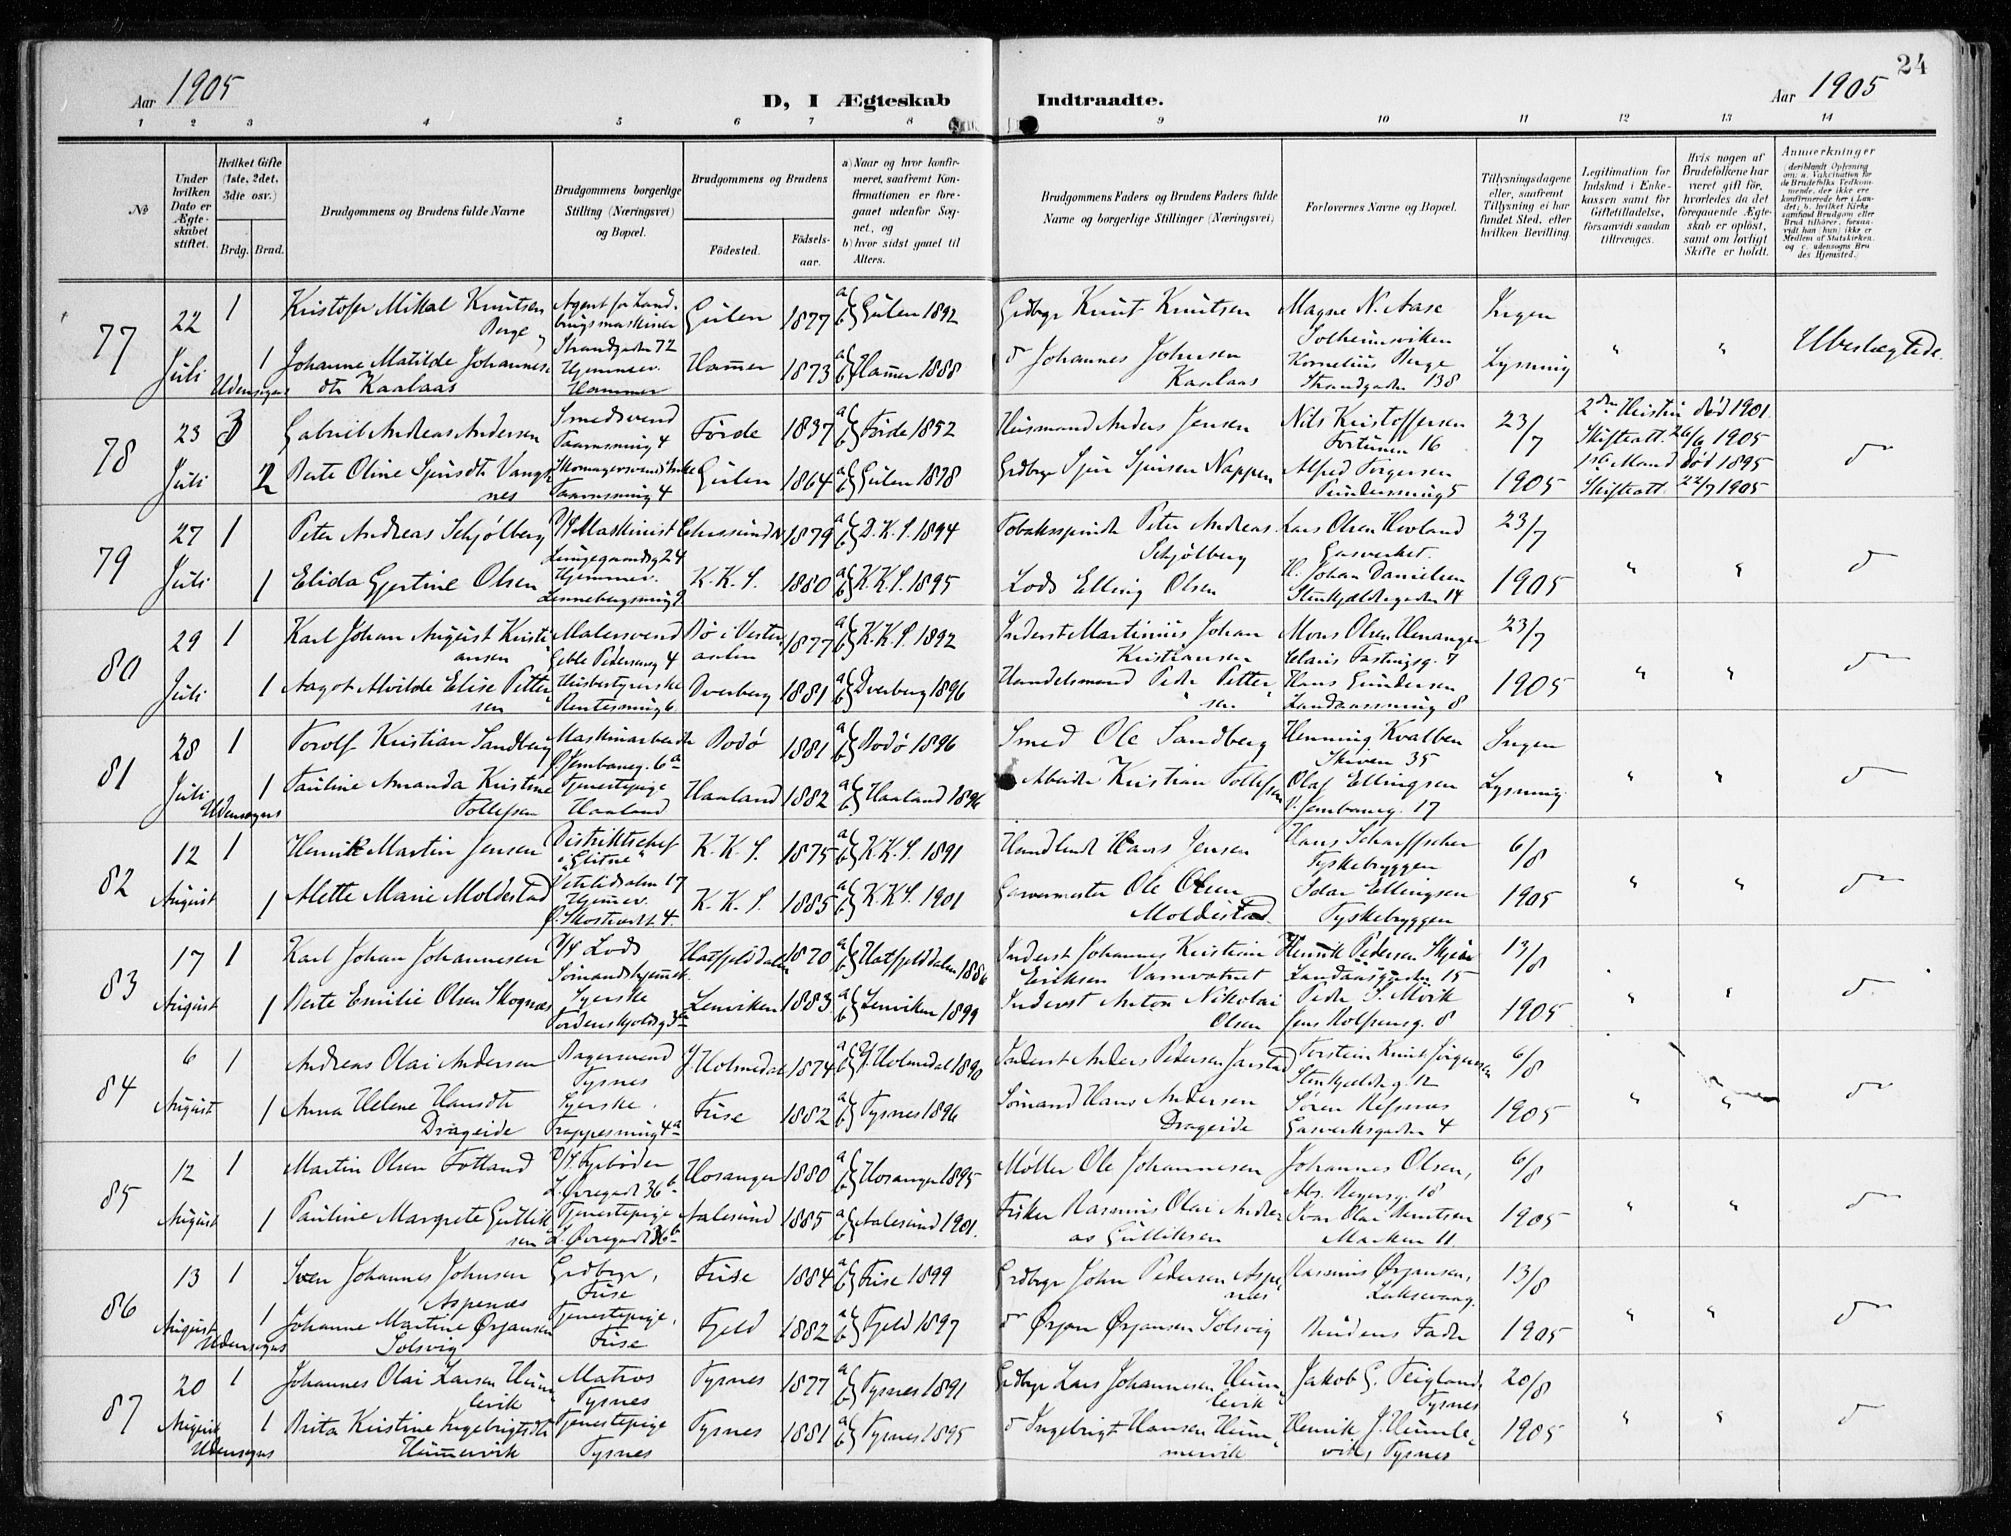 24
Aar 1905
D, I Ægteskab Indtraadte.
Aar 1905
1 2 3 4 5 6 7 8 9 10 11 12 13 14
№
Under hvilken Dato er Ægteskabet stiftet.
Hvilket Gifte (1ste, 2det, 3die osv.)
Brdg. Brud.
Brudgommens og Brudens fulde Navne
Brudgommens borgerlige Stilling (Næringsvei) og Bopæl.
Brudgommens og Brudens
Födested.
Födselsaar.
a) Naar og hvor konfirmeret, saafremt Konfirmationen er foregaaet udenfor Sognet, og
b) hvor sidst gaaet til Alters.
Brudgommens Faders og Brudens Faders fulde Navne og borgerlige Stillinger (Næringsvei)
Forlovernes Navne og Bopæl.
Tillysningsdagene eller, saafremt Tillysning ei har fundet Sted, efter hvilken Bevilling
Legitimation for Indskud i Enkekassen samt for Giftetilladelse, forsaavidt saadan tiltrænges.
Hvis nogen af Brudefolkene har været gift før, hvorledes da det foregaaende Ægteskab er opløst, samt om lovligt Skifte er holdt.
Anmerkninger
77
22 1 Kristofer Mikal Knutsen Berge Agent for Landbrugsmaskiner Strandgaden 72 Gulen 1877 a b Gulen 1892 Grdbgr Knut Knutsen Magne N. Aase Solheimsviken Ingen
Juli Udensogns 1 Johanne Matilde Johannesdtr Kaalaas Hjemmev. Hammer Hamer 1873 a b Hamer 1888 Johannes Johnsen Kaalaas Kornelius Berge Strandgaden 138 Lysning " " Ubeslægtede.
78
23 3 Gabriel Andreas Andersen Smedsvend Taarnsmug 4 Förde 1837 a b Förde 1852 Husmand Anders Jensen Nils Kristoffersen Fortunen 16 23/7 2den Hustru död 1901. Skifteatt. 26/6 1905
Juli 2 Berte Oline Sjursdtr Vangsnes Skomagersvend Enke Taarnsmug 4 Gulen 1864 a b Gulen 1878 Grdbgr Sjur Sjursen Nappen Alfred Torgersen Pundersmug 5 1905 1ste Mand död 1895 Skifteatt. 22/7 1905
79
27 1 Peter Andreas Schjølberg D/S Maskinist Lungegaardsg 24 1879 a b D.K.S. 1894 Tobakspindr Peter Andreas Schjølberg Lars Olsen Hovland Gasverket. 23/7
Juli 1 Elida Gjertine Olsen Hjemmev. K.K.S. 1880 a b K.K.S. 1895 Lods Elling Olsen H. Johan Danielsen Stenkjældergaden 14 1905 " "
80
29 1 Karl Johan August Kristiansen Malersvend Geble Pedersveg 4 Bø i Vesteraalen 1877 a b K.K.S. 1892 Inderst Martinius Johan Kristiansen Mons Olsen Henanger Claus Fastingsg. 7 23/7
Juli 1 Aagot Alvilde Elise Pettersen Husbestyrerske Rentesmug 6 Dverberg 1881 a b Dverberg 1896 Handelsmand Peder Pettersen Hans Gundersen Landaassmug 8 1905 " "
81
28 1 Torolf Kristian Sandberg Maskinarbeidr Bodö 1881 a b Bodö 1896 Smed Ole Sandberg Henning Kvalben Skiven 35 Ingen
Juli Udensogns 1 Pauline Amanda Kristine Tollefsen Tjenestepige Haaland Haaland 1882 a b Haaland 1896 Arbeidr Kristian Tollefsen Olaf Ellingsen 17 Lysning " "
82
12 1 Henrik Martin Jensen Distriktschef i "Gjitne" Vetrlidsalm 17 K.K.S. 1875 a b K.K.S. 1891 Handlende Hans Jensen Hans Scharffscher Tyskebryggen 6/8
August 1 Mette Marie Moldestad Hjemmev. K.K.S. 1885 a b K.K.S. 1901 Garvermester Ole Olsen Moldestad Idar Ellingsen Tyskebryggen 1905 " "
83
17 1 Karl Johan Johannesen D/S Lods Sömandshjemmet Hatfjelddalen 1870 a b Hatfjelddalen 1886 Inderst Johannes Kristian Eriksen Varnvatnet Henrik Pedersen Landaasgaden 15 13/8
August 1 Berte Emilie Olsen Skognæs Syerske Tordenskjoldsg 3 Lenviken 1883 a b Lenviken 1899 Inderst Anton Nikolai Olsen Peder S. Mövik Jens Rolfsensg. 8 1905 " "
84
6 1 Andreas Olai Andersen Bagersvend Tysnes Y Holmedal 1874 a b Y Holmedal 1890 Inderst Anders Pedersen Jarstad Torstein Knut Jörgensen Stenkjelderg 12 6/8
August 1 Anna Helene Hansdtr Drageide Syerske Trappesmug 4a Fuse 1882 a b Tysnes 1896 Sömand Hans Andersen Drageide Sören Refsnæs Gasverksgaden 4 1905 " "
85
12 1 Martin Olsen Fotland D/S Fyrböder L. Øvregade 36b Hosanger 1880 a b Hosanger 1895 Möller Ole Johannesen Johannes Olsen, 18 6/8
August 1 Pauline Margrete Gulliksen Tjenestepige L. Øvregade 36b Aalesund 1885 a b Aalesund 1901. Fisker Rasmus Olai Andreas Gulliksen Ivar Olai Knutsen Marken 11. 1905 " "
86
13 1 Sven Johannes Johnsen Aspenæs Grdbrgr, Fuse Fuse 1884 a b Fuse 1899 Grdbgr John Pedersen Aspenæs Rasmus Ørjansen, Laksevaag. 13/8
August Udensogns 1 Johanne Martine Ørjansen Solsvig Tjenestepige, Fuse Fjeld 1882 a b Fjeld 1897 Ørjan Ørjansen Solsvig Brudens Fader 1905 " "
87
20 1 Johannes Olai Larsen Humlevik Matros Tysnes Tysnes 1877 a b Tysnes 1891 Grdbgr Lars Johannesen Humlevik Jakob G. Teigland, Tysnes 20/8
August Udensogns 1 Brita Kristine Ingebrigtsdtr Hummervik Tjenestepige Tysnes Tysnes 1881 a b Tysnes 1895 Ingebrigt Hansen Hummervik Henrik J. Humlevik, Tysnes 1905 " "